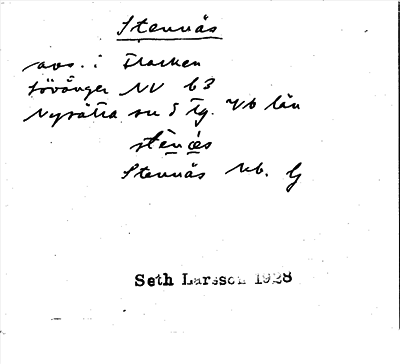 Stennäs
avs. i Flarken
Lövånger NV b3
Nysätra sn S Tg. Vb län
Stennäs Kb. G
Seth Larsson 1928